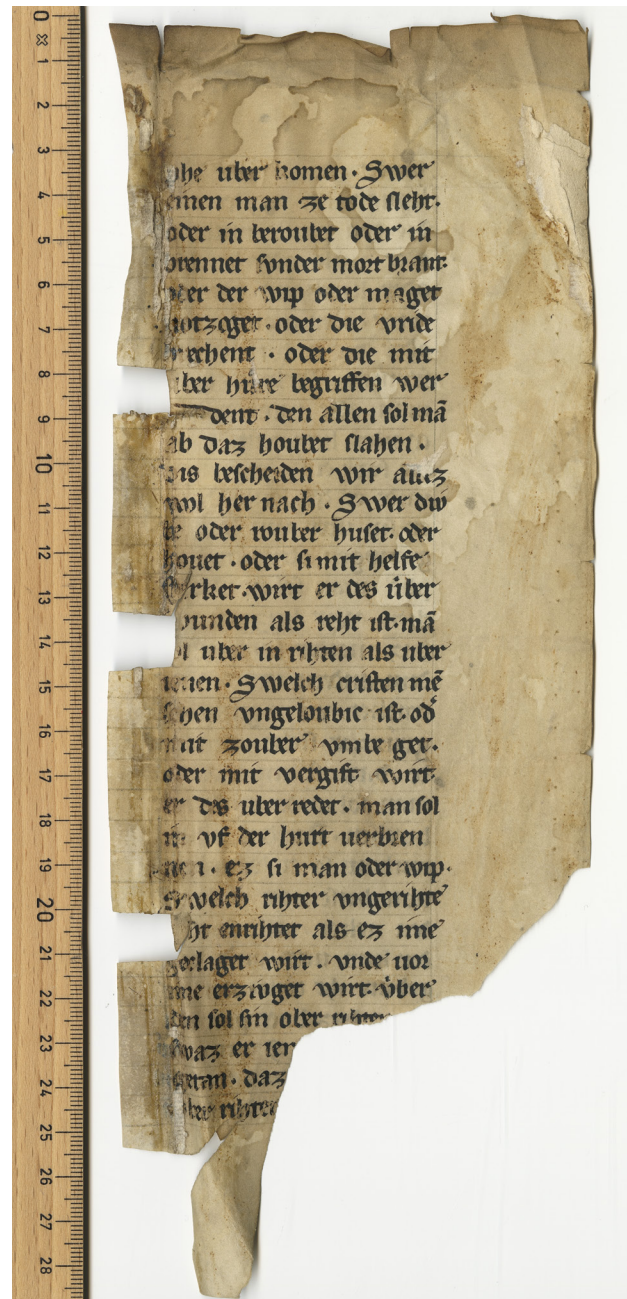 uber komen · Swer
einen man ze tode sleht·
oder in beroubet oder in
brennet sunder mort brant·
oder der wip oder maget
notzoget · oder die vride
brechent · oder die mit
uber hure begriffen wer
dent · den allen sol mā
ab daz houbet slahen ·
bescheiden wir
wol her nach · Swer diw
oder rouber huset· oder
houet · oder si mit helfe
sterket · wirt er des vber
wunden als reht ist· mā
uber in rihten als uber
ienen · Swelch cristen mē
schen vngeloubic ist· od̓
mit zouber vmbe get·
oder mit vergift wirt
er des uber redet · man sol
in vf der hurt uerbren
nen · ez si man oder wip·
Swelch rihter vngerihte
niht enrihtet als ez ime
geclaget wirt · vnde uor
ime erzivget wirt· vber
den sol sin ober rihter
swaz er
getan · daz
vber rihter